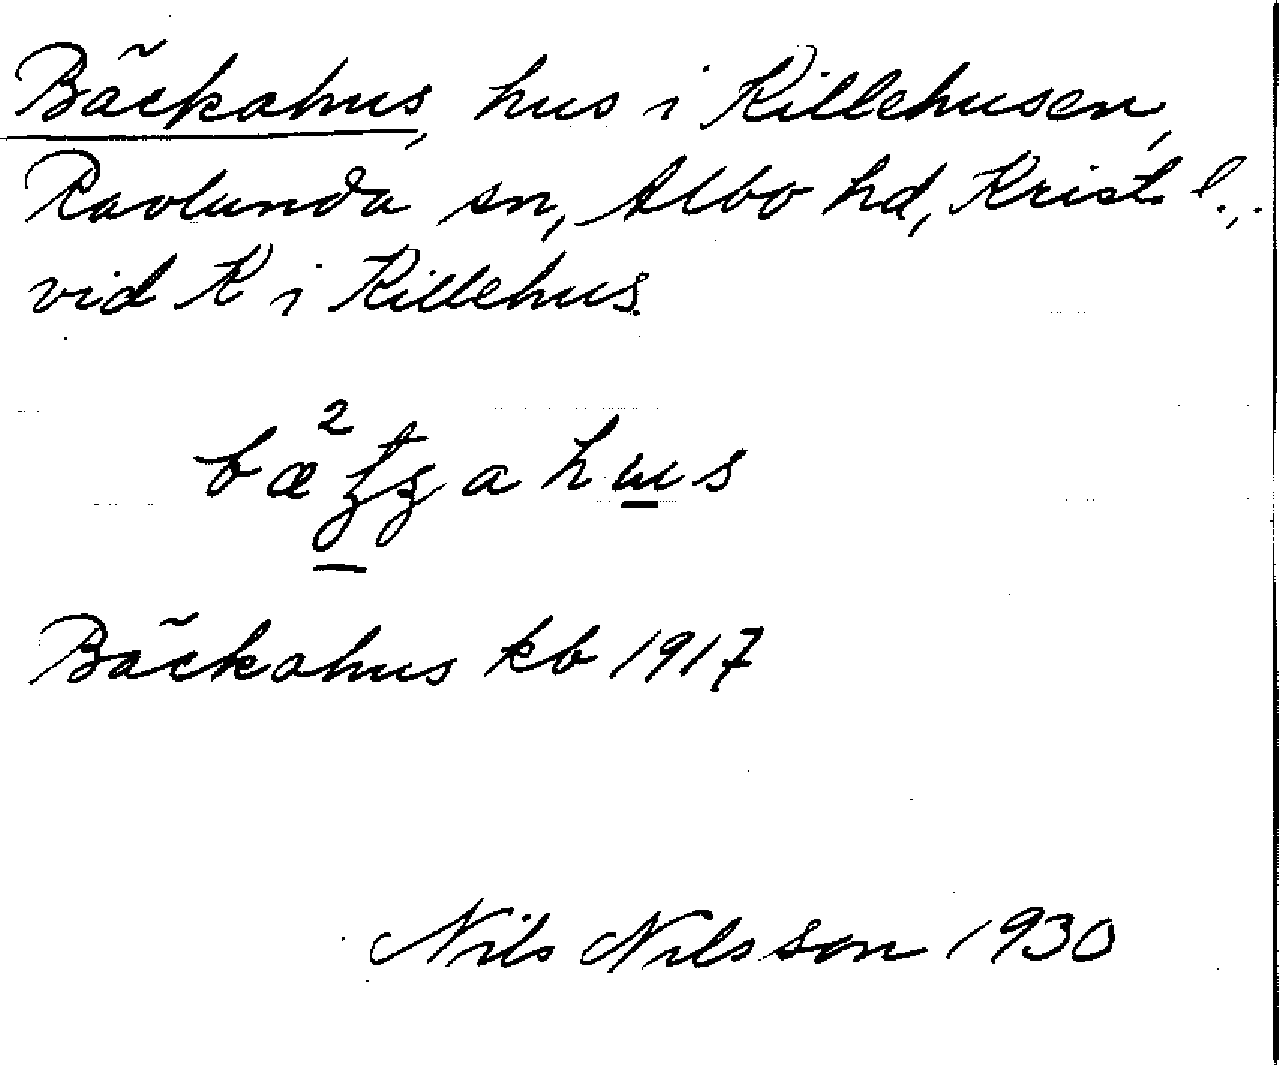 Bäckahus, hus i Killehusen,
Ravlunda sn, Albo hd, Krist. l.,
vid K i Killehus.
Bäckahus kb 1917
Nils Nilsson 1930